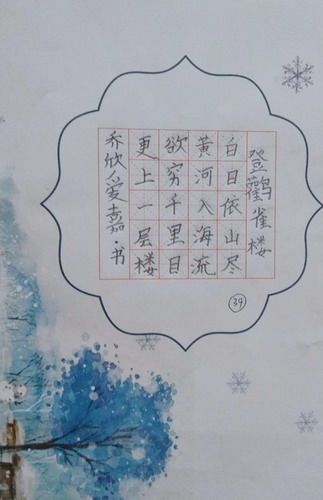 登鹳雀楼
白日依山尽
黄河入海流
欲穷千里目
更上一层楼
乔欣爱嘉·书
39